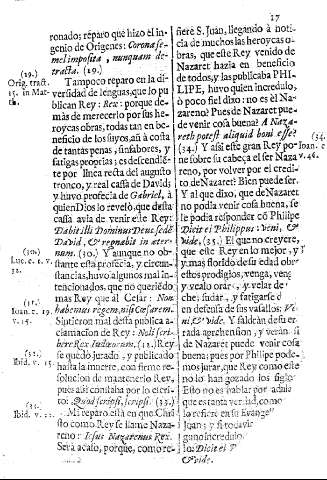 17
ronado; reparo que hizo el in-
genio de Origenes: Corona se-
mel imposita, nunquam de-
tracta. (29.)
Tampoco reparo en la di-
versidad de lenguas, que lo pu-
blican Rey: Rex: porque de-
màs de merecerlo por sus he-
roycas obras, todas tan en be-
neficio de los suyos, á à costa
de tantas penas, sinsabores, y
fatigas proprias; es descendie-
te por linea recta del augusto
tronco, y real casa de David;
y huvo profecia de Gabriel, à
quien Dios lo revelò, que desta
casa avia de venir este Rey:
Dabit illi Dominus Deus sedē
David, & regnabit in eter-
num. (30.) Y aunque no ob-
stante esta profecia, y circun-
stancias, huvo algunos mal in-
tencionados, que no queriēdo
mas Rey que al Cesar: Non
habemus regem, nisi Cæsarem.
Sintieron mal desta publica a-
clamacion de Rey: Noli scri-
bere Rex Iudæorum, (32.) Rey
se quedò jurado, y publicado
hasta la muerte, con firme re-
solucion de mantenerlo Rey,
pues assi constaba por lo escri-
to: Quod scripsi, scripsi. (33.)
Mi reparo està en que Chri-
sto como Rey se llame Naza-
reno: Iesus Nazarenus Rex.
Serà acaso, porque, como re-
(29.)
Orig. tract.
35. in Mat-
th.
(30.)
Luc. c. 1. v.
32.
(31.)
Ioan. c. 19.
v. 15.
(32.)
Ibid. v. 15.
(33.)
Ibid. v. 22.
fiere S. Juan, llegando à noti-
cia de muchos las heroycas o-
bras, que este Rey venido de
Nazaret hazia en beneficio
de todos, y las publicaba PHI-
LIPE, huvo quien incredulo,
ò poco fiel dixo: no es èl Na-
zareno? Pues de Nazaret pue-
de venir cosa buena? A Naza-
reth potest aliquid boni esse?
(34.) Y assi este gran Rey po-
ne sobre su cabeça el ser Naza
reno, por volver por el credi-
to de Nazaret? Bien puede ser.
Y al que dixo, que de Nazaret
no podia venir cosa buena, se
le podia responder cō Philipe
Dicit ei Philippus: Veni, &
vide. (35.) El que no creyere,
que este Rey en lo mejor, y
mas florido de su edad obra
estos prodigios, venga, venga
y vealo orar, y velar de no-
che; sudar, y fatigarse de dia
en defensa de sus vasallos: Ve-
ni, & vide. Y saldràn de su er-
rada aprehension, y veràn si
de Nazaret puede venir cosa
buena; pues por Philipe pode-
mos jurar, que Rey como este
no lo han gozado los siglos.
Esto no es hablar por adula
que es tanta verdad, como
lo refiere en su Evange
Juan; y si todavia
guno incredulo.
los: Dicit ei P
& vide.
(34.
Ioan. c.
v. 46.